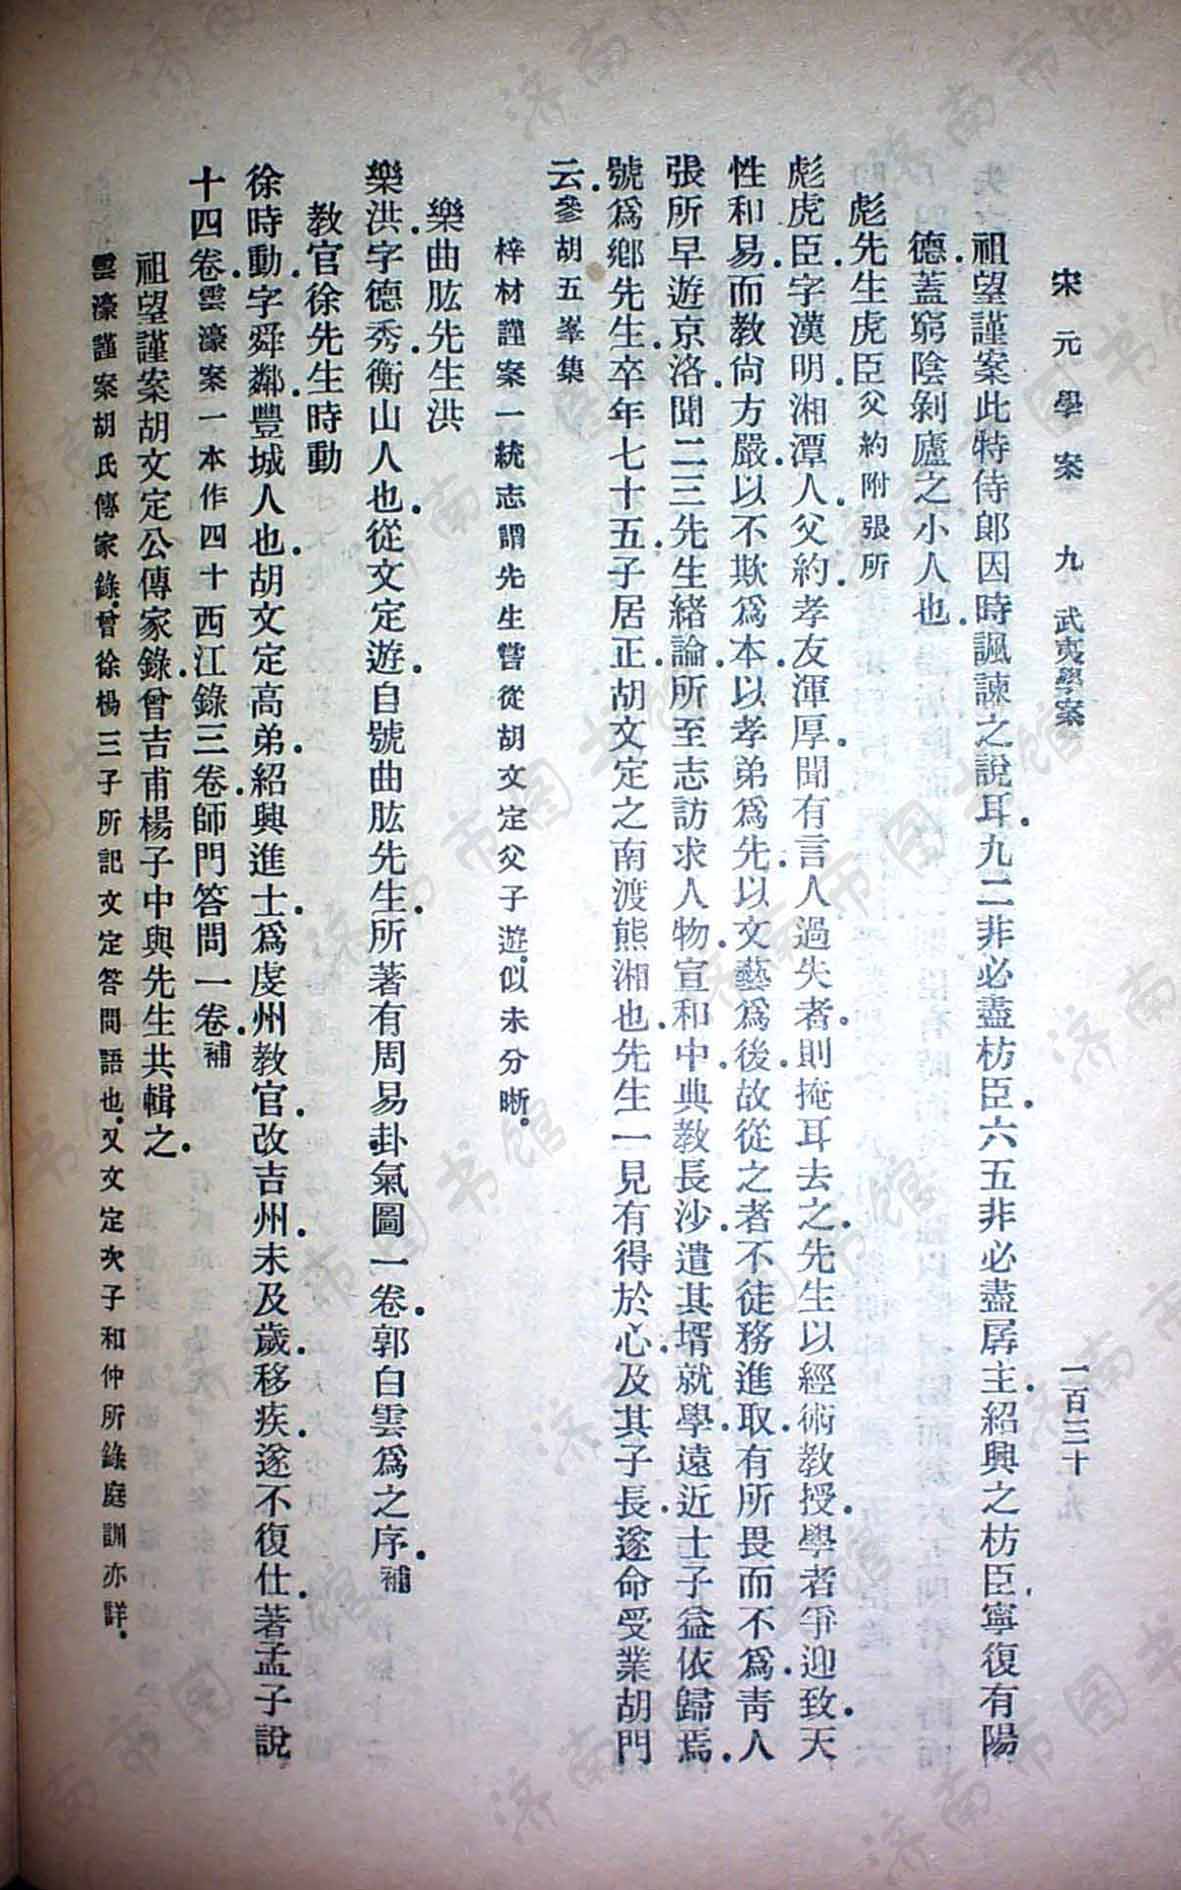 宋元學案 九 武夷學案 一百三十
祖望謹案此特侍郞因時諷諫之說耳.九二非必盡枋臣.六五非必盡孱主.紹興之枋臣.寧復有陽
德.蓋窮陰剝廬之小人也.
彪先生虎臣父約附張所
彪虎臣.字漢明.湘潭人.父約.孝友渾厚.聞有言人過失者.則掩耳去之.先生以經術敎授.學者爭迎致.天
性和易.而教尙方嚴.以不欺爲本.以孝弟爲先.以文藝爲後.故從之者不徒務進取.有所畏而不爲.靑人
張所.早遊京洛.聞二三先生緒論.所至志訪求人物.宣和中.典教長沙.遣其壻就學.遠近士子益依歸焉.
號爲鄕先生.卒年七十五.子居正.胡文定之南渡熊湘也.先生一見有得於心.及其子長.遂命受業胡門
云.參胡五峯集
梓材謹案一統志謂先生嘗從胡文定父子遊.似未分晰.
樂曲肱先生洪
樂洪.字德秀.衡山人也.從文定遊.自號曲肱先生.所著有周易卦氣圖一卷.郭白雲爲之序.補
教官徐先生時動
徐時動.字舜鄰.豐城人也.胡文定高弟.紹興進士.爲虔州教官.改吉州.未及歲.移疾.遂不復仕.著孟子說
十四卷.雲濠案一本作四十西江錄三卷.師門答問一卷.補
祖望謹案胡文定公傳家錄.曾吉甫楊子中與先生共輯之.
雲濠謹案胡氏傳家錄.曾徐楊三子所記文定答問語也.又文定次子和仲所錄庭訓亦詳.
济南市图书馆